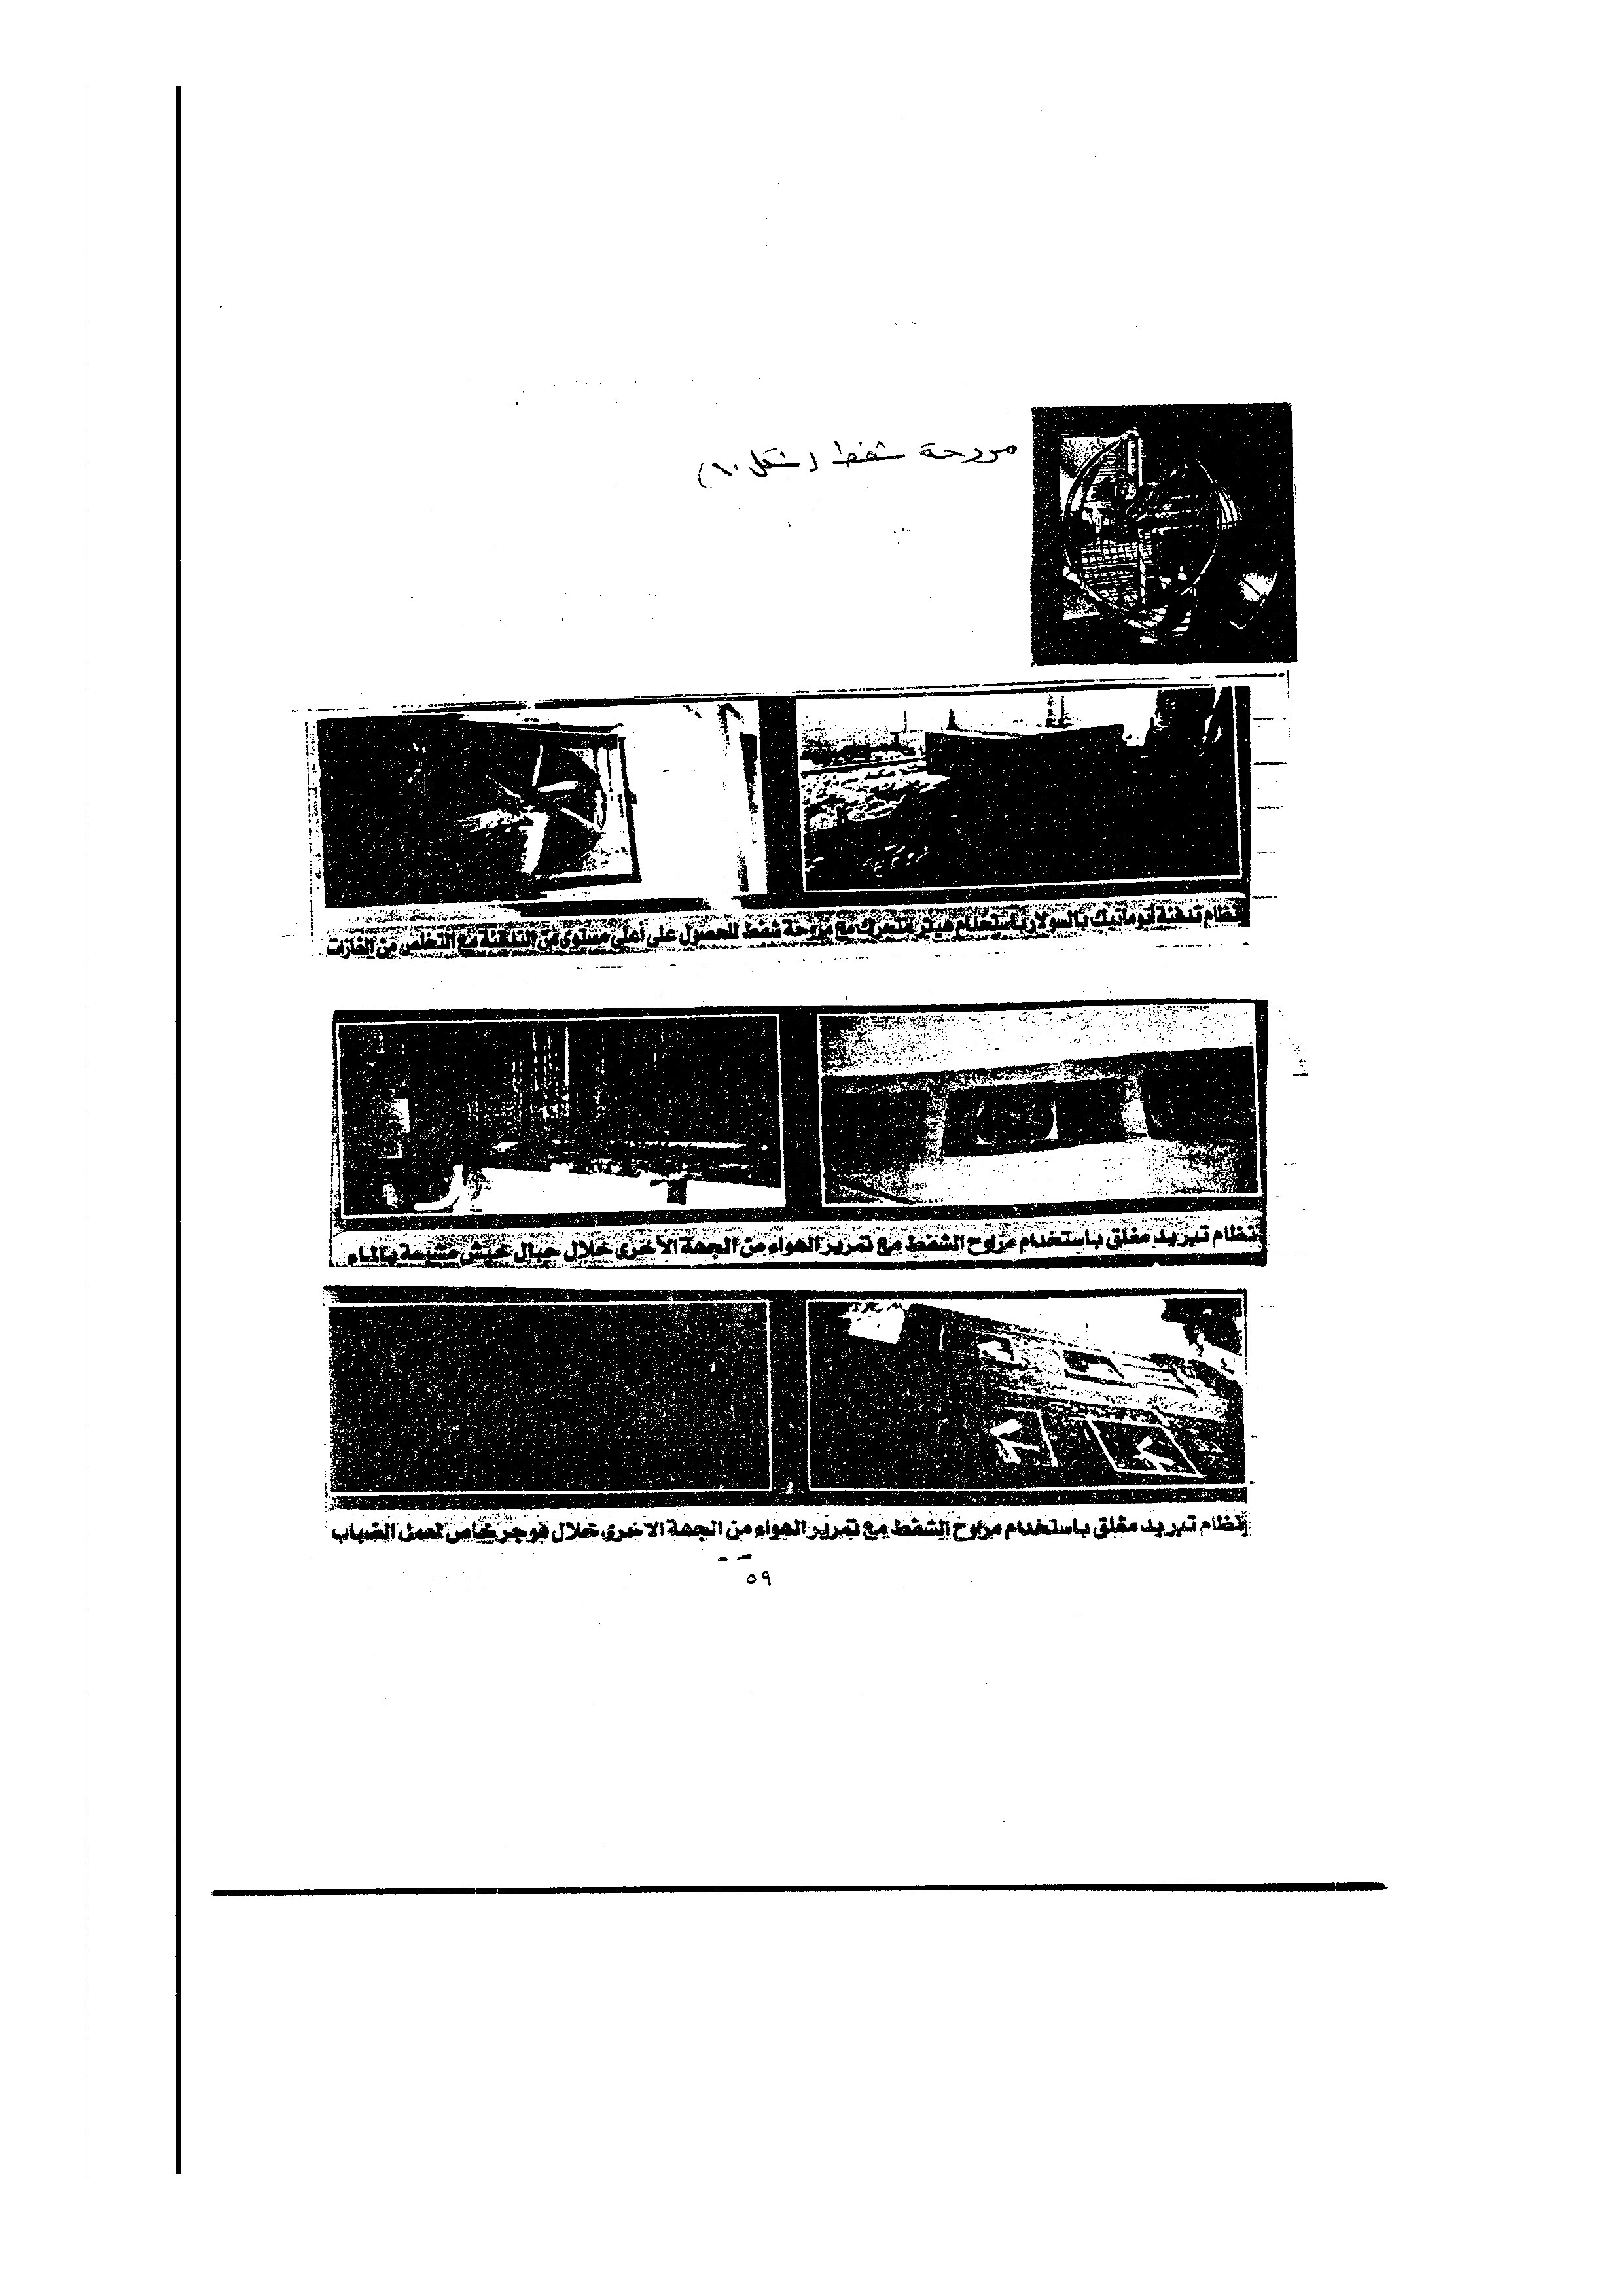 مروحة شفط (شكل ١٠)
نظام تدفئة أتوماتيك بالسولار باستخدام هيتر متحرك مع مروحة شفط للحصول على أعلى مستوى من التدفئة مع التخلص من الغازات
نظام تبريد مغلق باستخدام مراوح الشفط مع تمرير الهواء من الجهة الأخرى خلال حبال خيش مشبعة بالماء
نظام تبريد مغلق باستخدام مراوح الشفط مع تمرير الهواء من الجهة الاخرى خلال فوجر خاص لعمل الضباب
٥٩